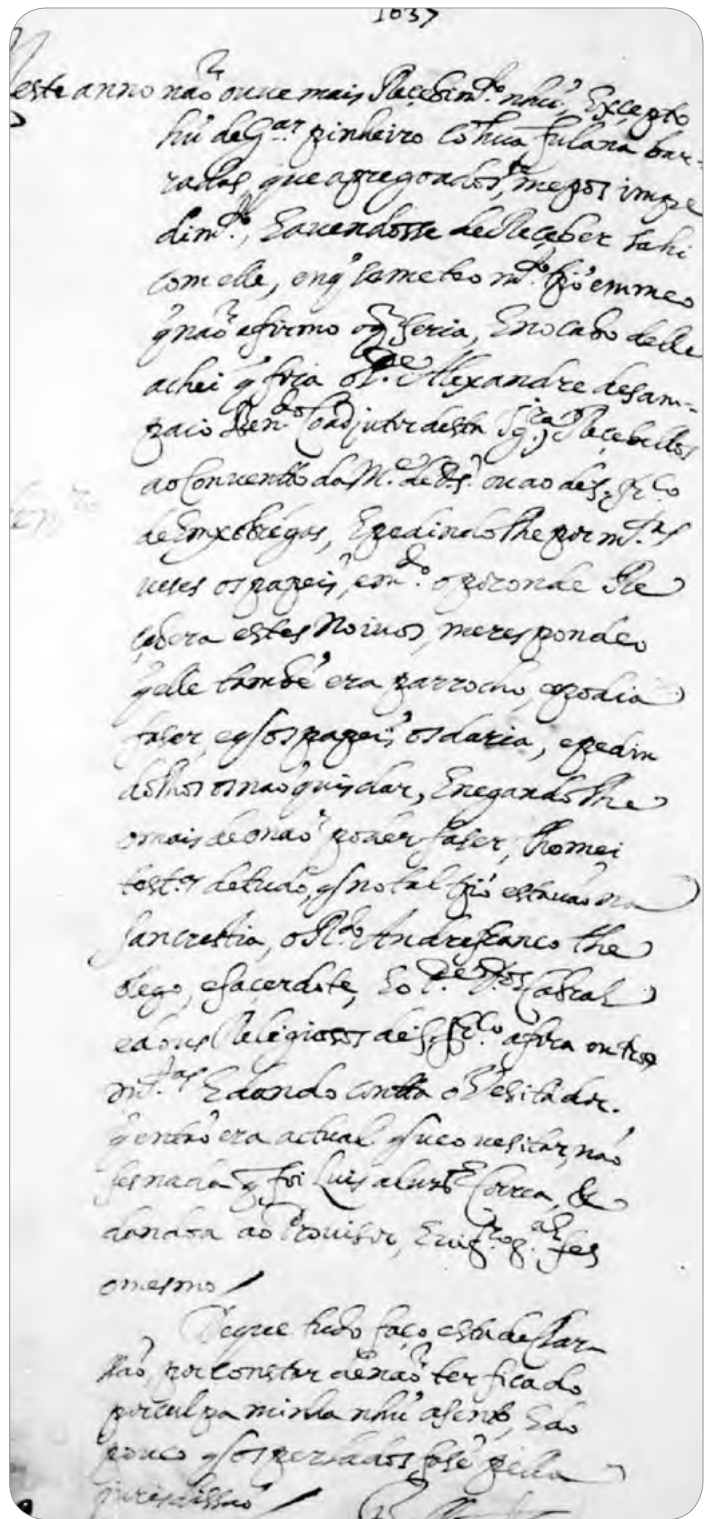 1637
Neste anno não ouue mais Recebimto nhũ, Excepto
hũ de Gar pinheiro cõ hua fulana bar-
radas, que apregoados, me pos impe
dimto, E auendosse de Receber sahi
com elle, enq̃ se meteo mto tpõ em meo
q̃ não afirmo o q̃ seria, E no cabo delle
achei q̃ fora o Pe Alexandre de sam-
paio Coadjutor desta Igra Recebellos
ao Conuento da Me de Ds ou ao de S. Frco
de Emxobregas, E pedindolhe por mtas
ueses os papeis, e mdo o por onde Re
cebera estes Noiuos, me respondeo
q̃ elle também era parrocho, e podia
faser, e q̃ os papeis os daria, e pedin
dolhos os não quis dar, E negandolhe
o mais de o não poder faser, thomei
testas de tudo, q̃ no tal tpõ estauão na
sancrestia, o Rdo Andre franco the
ologo, e sacerdote, E o Pe Cabral
e dous Religiosos de S. Frco afora outros
mtas E dando conta o Vesitador.
q̃ então era actual q̃ ueo uesitar, não
fes nada q̃ foi Luis Correa, &
dandoa ao Prouisor, E uigro gal fes
o mesmo /
De que tudo faço esta declara
são, por constar de não ter ficado
por culpa minha nhũ asento, E do
pouco q̃ os perlados fasẽ pella
jurisdissão /